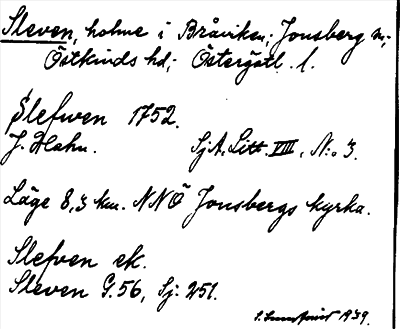 Sleven, holme i Bråviken; Jonsberg sn;
Östkinds hd; Östergötl. l.
Slefwen 1752.
J. Hahn. SjA. Litt. VIII, N:o 3.
Läge 8,3 km. NNÖ Jonsbergs kyrka.
Slefven ek.
Sleven G. 56, Sj. 251.
1939.